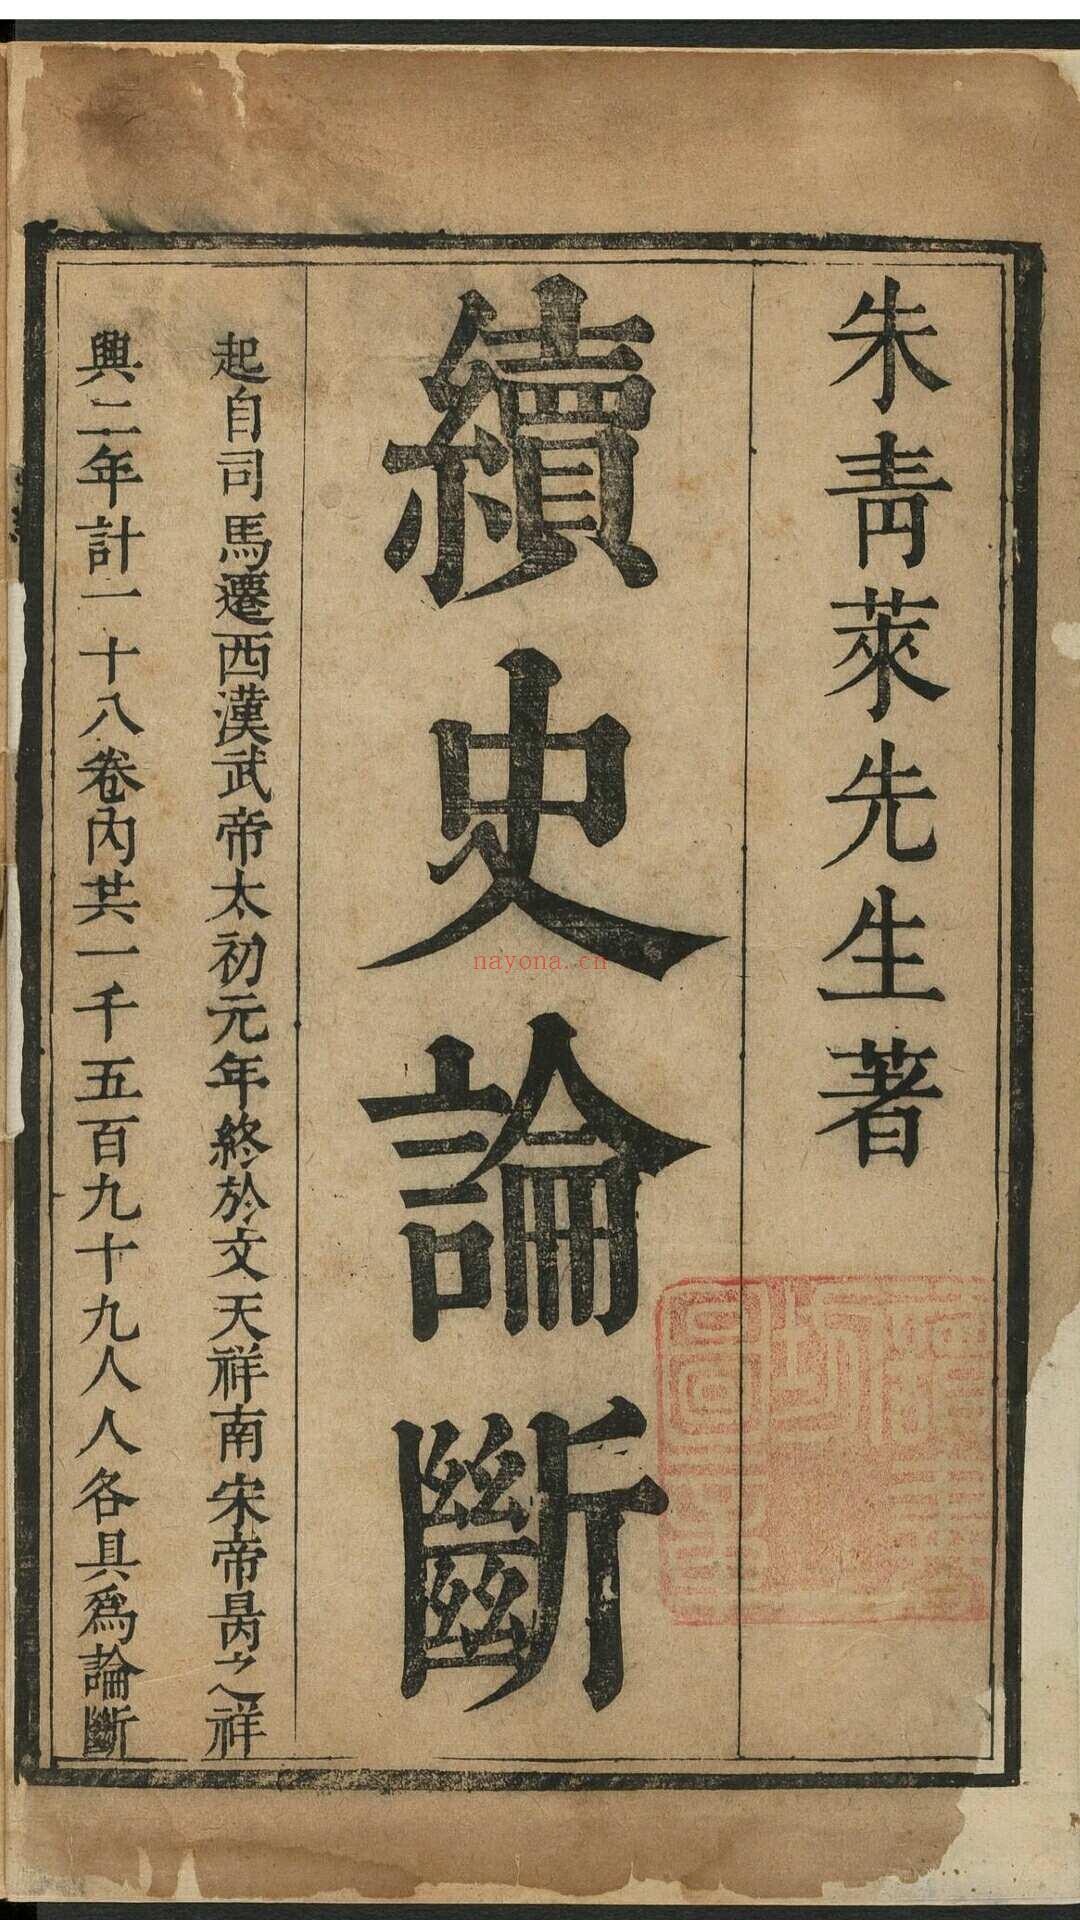 朱青萊先生著
續史論斷
起自司馬遷西漢武帝太初元年終於文天祥南宋帝昺之祥
興二年計一十八卷內共一千五百九十九人人各具爲論斷
nayona.cn